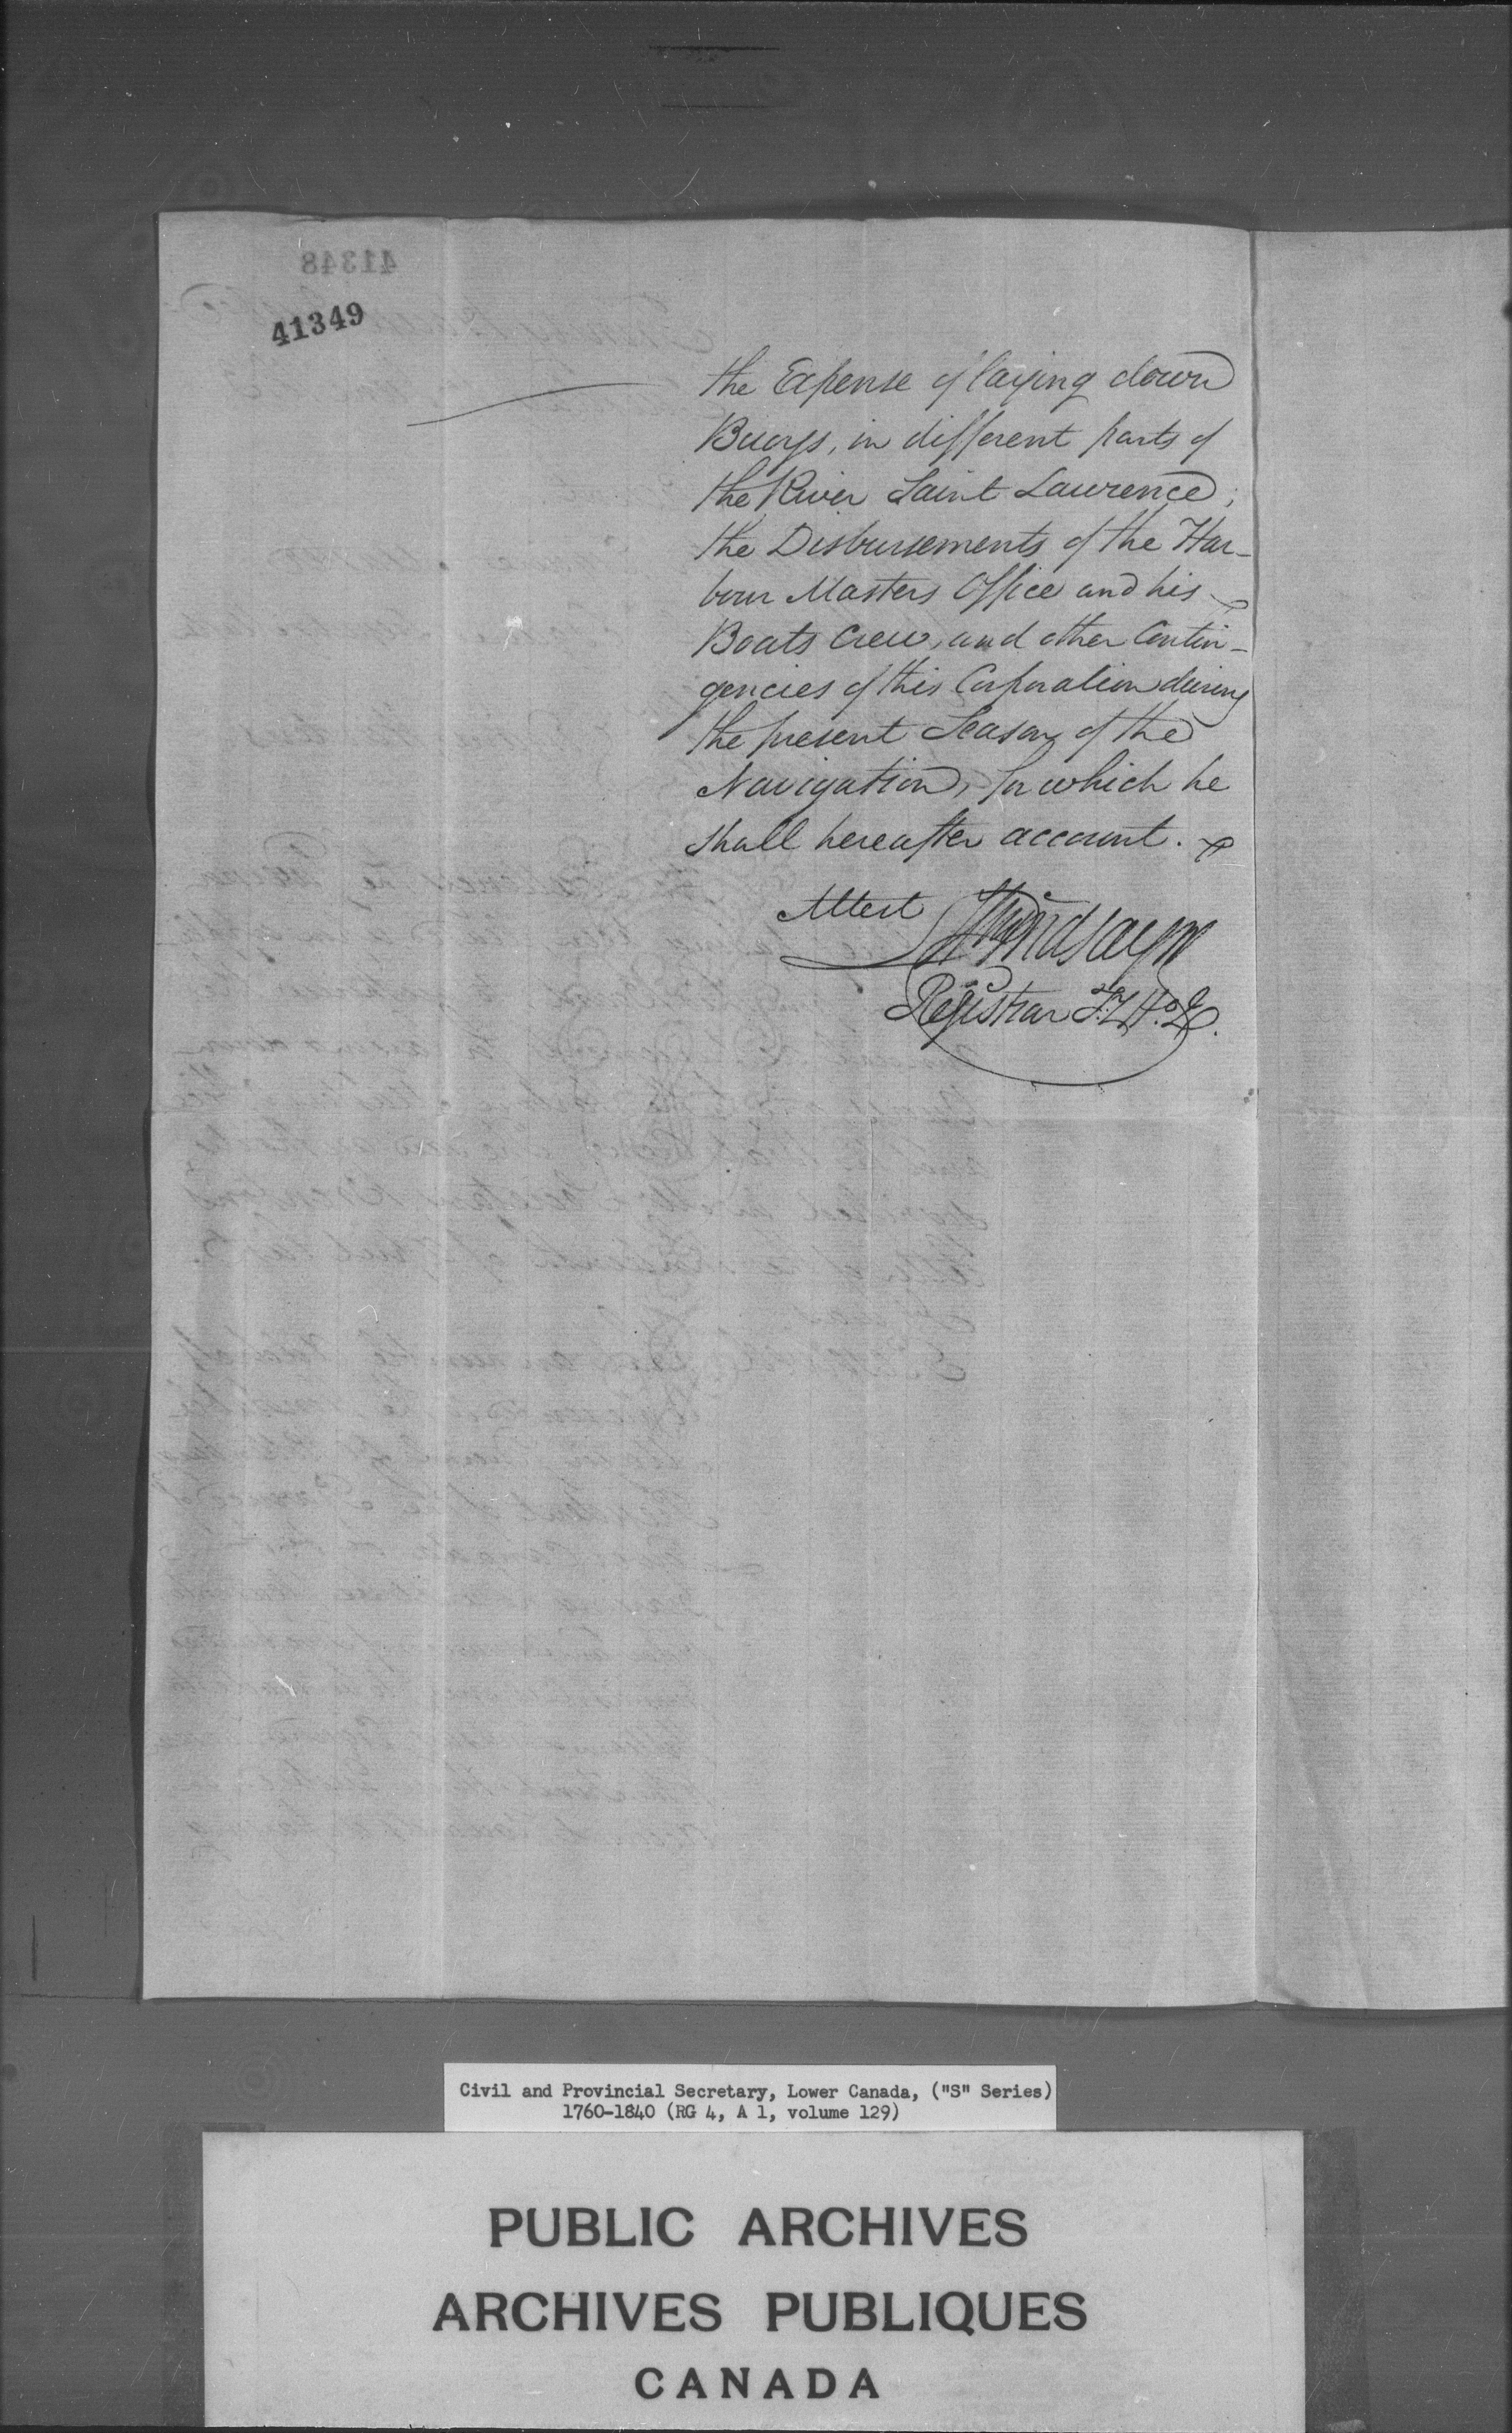 41348
41349
the Expense of laying down
Buoys, in different parts of
the River Saint Lawrence;
the Disbursements of the Har-
bour Masters Office and his
Boats Crew, and other Contin-
gencies of this Corporation during
the present Season of the
Navigation, for which he
shall hereafter account.
Attest
Lindsay
Registrar T. H. Q.
Civil and Provincial Secretary, Lower Canada, ("S" Series)
1760-1840 (RG 4, A 1, volume 129)
PUBLIC ARCHIVES
ARCHIVES PUBLIQUES
CANADA